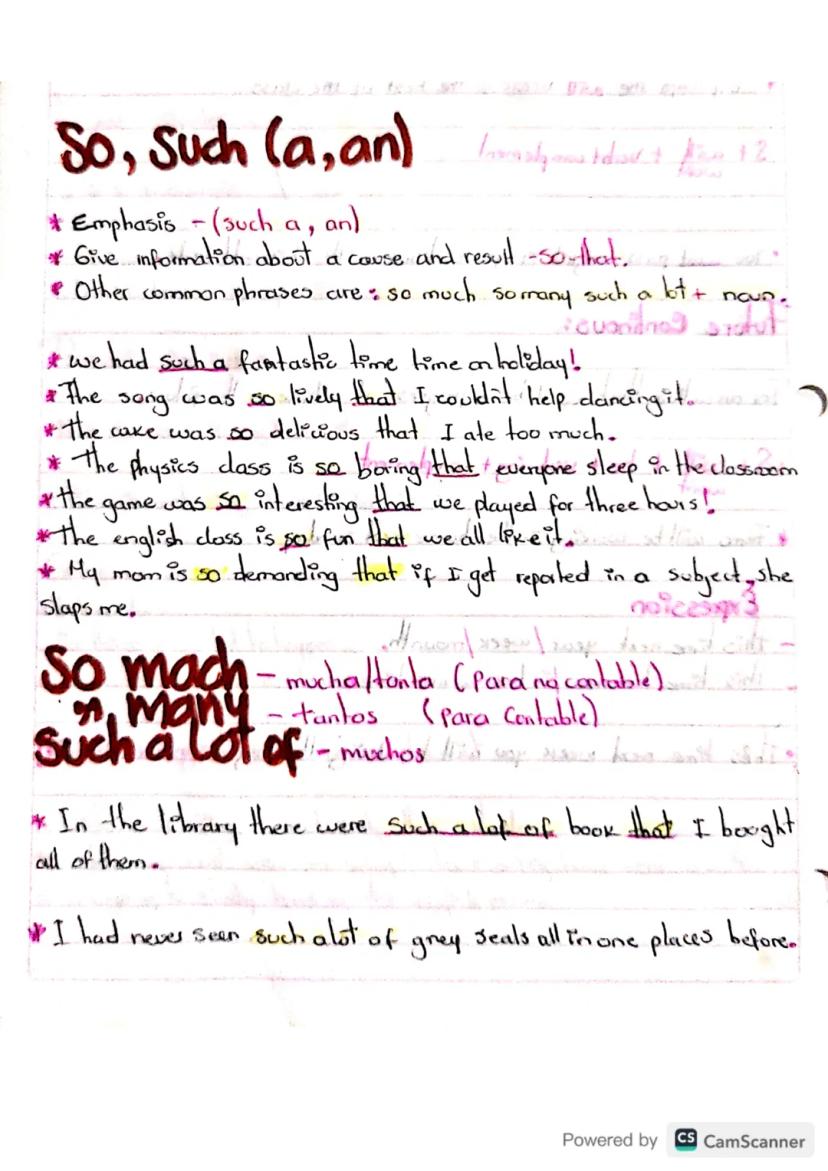 So, such (a, an)
* Emphasis - (such a, an)
* Give information about a cause and result - so-that.
* Other common phrases are: so much so many such a lot + noun.
Future Continuous:
* we had such a fantastic time time on holiday!
* The song was so lively that I couldn't help dancing it.
* The cake was so delicious that I ate too much.
* The physics class is so boring that everyone sleep in the classroom
* the game was so interesting that we played for three hours!
* the english class is so fun that we all like it.
* My mom is so demanding that if I get reported in a subject, she
slaps me.
Expression
So mach - mucha/tanta (para no contable)
", many - tantos (para Contable)
Such a lot of - muchos
* In the library there were such a lot of book that I bought
all of them.
* I had never seen such a lot of grey seals all in one places before.
Powered by CS CamScanner